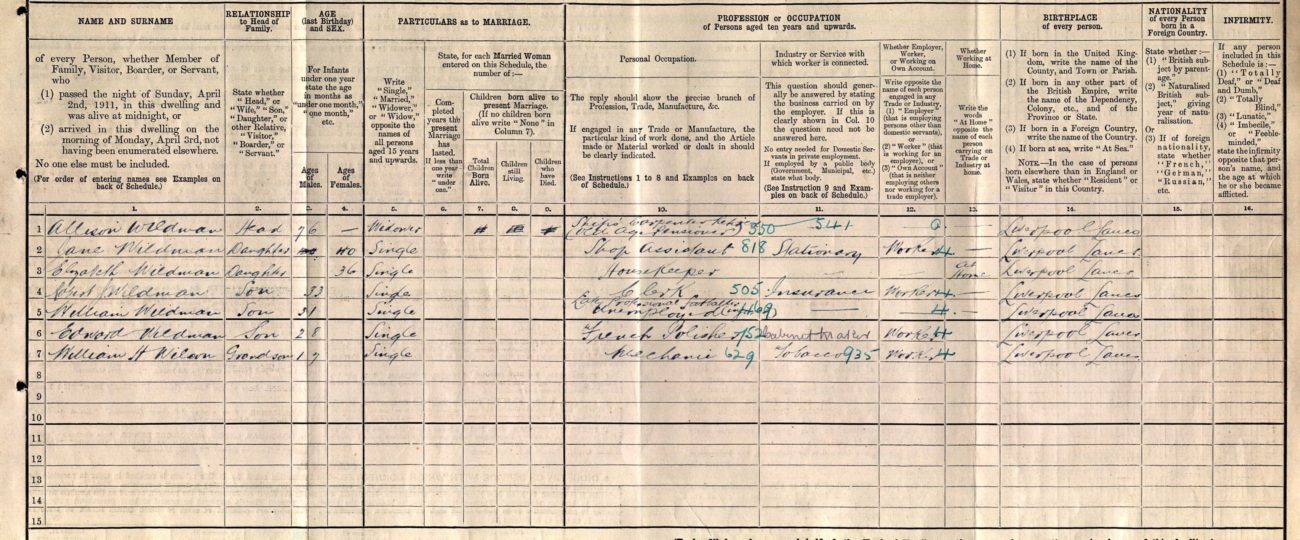 NAME AND SURNAME
RELATIONSHIP
to Head of
Family.
AGE
(last Birthday)
and SEX.
PARTICULARS as to MARRIAGE.
PROFESSION or OCCUPATION
of Persons aged ten years and upwards.
BIRTHPLACE
of every person.
NATIONALITY
of every Person
born in a
Foreign Country.
INFIRMITY.
of every Person, whether Member of
Family, Visitor, Boarder, or Servant,
who
(1) passed the night of Sunday, April
2nd, 1911, in this dwelling and
was alive at midnight, or
(2) arrived in this dwelling on the
morning of Monday, April 3rd, not
having been enumerated elsewhere.
No one else must be included.
(For order of entering names see Examples on
back of Schedule.)
State whether
"Head," or
"Wife," "Son,"
"Daughter," or
other Relative,
"Visitor,"
"Boarder," or
"Servant."
For Infants
under one year
state the age
in months as
"under one month,"
"one month,"
etc.
Ages
of
Males.
Ages
of
Females.
Write
"Single,"
"Married,"
"Widower,"
or "Widow,"
opposite the
names of
all persons
aged 15 years
and upwards.
State, for each Married Woman
entered on this Schedule, the
number of:—
Completed
years the
present
Marriage
has
lasted.
If less
than
one year
write
"under
one."
Children born alive to
present Marriage.
(If no children born
alive write "None" in
Column 7).
Total
Children
Born
Alive.
Children
still
Living.
Children
who
have
Died.
Personal Occupation.
The reply should show the precise branch of
Profession, Trade, Manufacture, &c.
If engaged in any Trade or Manufacture, the
particular kind of work done, and the Article
made or Material worked or dealt in should
be clearly indicated.
(See Instructions 1 to 8 and Examples on back
of Schedule.)
Industry or Service with
which worker is connected.
This question should gener-
ally be answered by stating
the business carried on by
the employer. If this is
clearly shown in Col. 10
the question need not be
answered here.
No entry needed for Domestic Ser-
vants in private employment.
If employed by a public body
(Government, Municipal, etc.)
state what body.
(See Instruction 9 and Exam-
ples on back of Schedule.)
Whether Employer,
Worker,
or Working on
Own Account.
Write opposite the
name of each person
engaged in any
Trade or Industry.
(1) "Employer"
(that is employing
persons other than
domestic servants),
or
(2) "Worker" (that
is working for an
employer), or
(3) "Own Account"
(that is neither
employing others
nor working for a
trade employer).
Whether
Working at
Home.
Write the
words
"At Home"
opposite the
name of each
person
carrying on
Trade or
Industry at
home.
(1) If born in the United King-
dom, write the name of the
County, and Town or Parish.
(2) If born in any other part of
the British Empire, write
the name of the Dependency,
Colony, etc., and of the
Province or State.
(3) If born in a Foreign Country,
write the name of the Country.
(4) If born at sea, write "At Sea."
NOTE.—In the case of persons
born elsewhere than in England or
Wales, state whether "Resident" or
"Visitor" in this Country.
State whether:—
(1) "British
subject by
parent-
age."
(2) "Naturalised
British
subject,"
giving
year of
naturalisation.
Or
(3) If of foreign
nationality,
state whether
"French,"
"German,"
"Russian,"
etc.
If any person
included in this
Schedule is:—
(1) "Totally
Deaf," or "Deaf
and Dumb,"
(2) "Totally
Blind,"
(3) "Lunatic,"
(4) "Imbecile,"
or "Feeble-
minded,"
state the infirmity
opposite that per-
son's name, and
the age at which
he or she became
afflicted.
1. 2. 3. 4. 5. 6. 7. 8. 9. 10. 11. 12. 13. 14. 15. 16.
1 Allison Wildman Head 76 — Widower Ships Carpenter (Old Age Pensioner) 350 541 0 — Liverpool Lancs
2 Jane Wildman Daughter 40 Single Shop Assistant 818 Stationary Worker 4 — Liverpool Lancs
3 Elizabeth Wildman Daughter 36 Single Housekeeper At Home Liverpool Lancs
4 Wildman Son 33 Single Clerk 505 Insurance Worker 4 — Liverpool Lancs
5 William Wildman Son 31 Single Late Professional footballer Unemployed — 4 — Liverpool Lancs
6 Edward Wildman Son 28 Single French Polisher Cabinet Maker Worker 4 Liverpool Lancs
7 William H Wilson Grandson 19 Single Mechanic 629 Tobacco 935 Worker 4 Liverpool Lancs
8
9
10
11
12
13
14
15